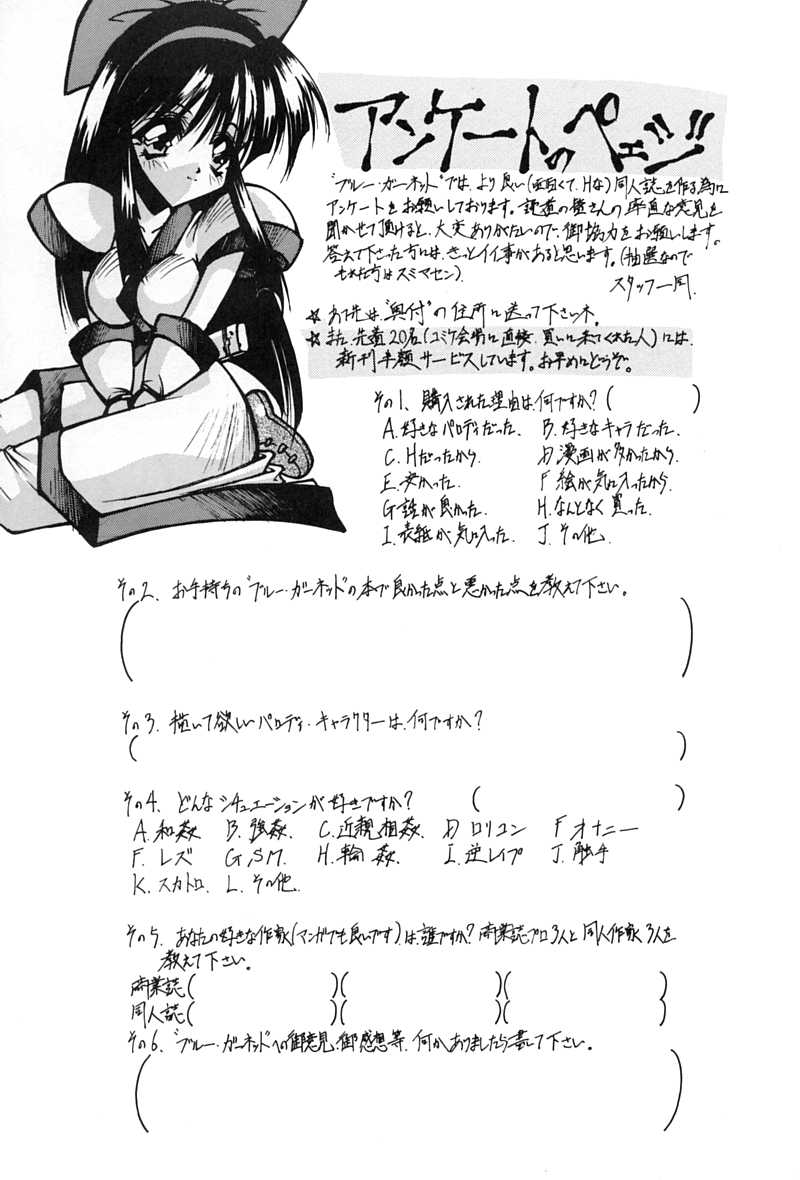 アンケートのペェジ!!
“ブルー・ガーネット”では、より良い(面白くて、Hな)同人誌を作る為に
アンケートをお願いしております。読者の皆さんの率直な意見を
聞かせて頂けると、大変ありがたいので、御協力をお願いします。
答えて下さった方には、きっとイイ事があると思います。(抽選なので
もれた方はスミマセン)
スタッフ一同.
☆ あて先は“奥付”の住所に送って下さいネ。
☆ また、先着20名(コミケ会場に直接、買いに来てくれた人)には、
新刊半額サービスしています。お早めにどうぞ。
その1、購入された理由は、何ですか?( )
A.好きなパロディだった. B.好きなキャラだった.
C.Hだったから. D.漫画が多かったから.
E.安かった. F 絵が気に入ったから.
G.話が良かった. H.なんとなく買った.
I.表紙が気に入った. J.その他.
その2、お手持ちの“ブルー・ガーネット”の本で良かった点と悪かった点を教えて下さい。
( )
その3、描いて欲しいパロディ・キャラクターは、何ですか?
( )
その4、どんなシチュエーションが好きですか? ( )
A.和姦 B.強姦. C.近親相姦. D ロリコン F オナニー
F.レズ G.SM. H.輪姦. I.逆レイプ J.触手
K.スカトロ. L.その他.
その5、あなたの好きな作家(マンガでも良いです)は、誰ですか?商業誌プロ3人と同人作家3人を
教えて下さい。
商業誌( )( )( )
同人誌( )( )( )
その6、“ブルー・ガーネット”への御意見、御感想等、何かありましたら書いて下さい。
( )